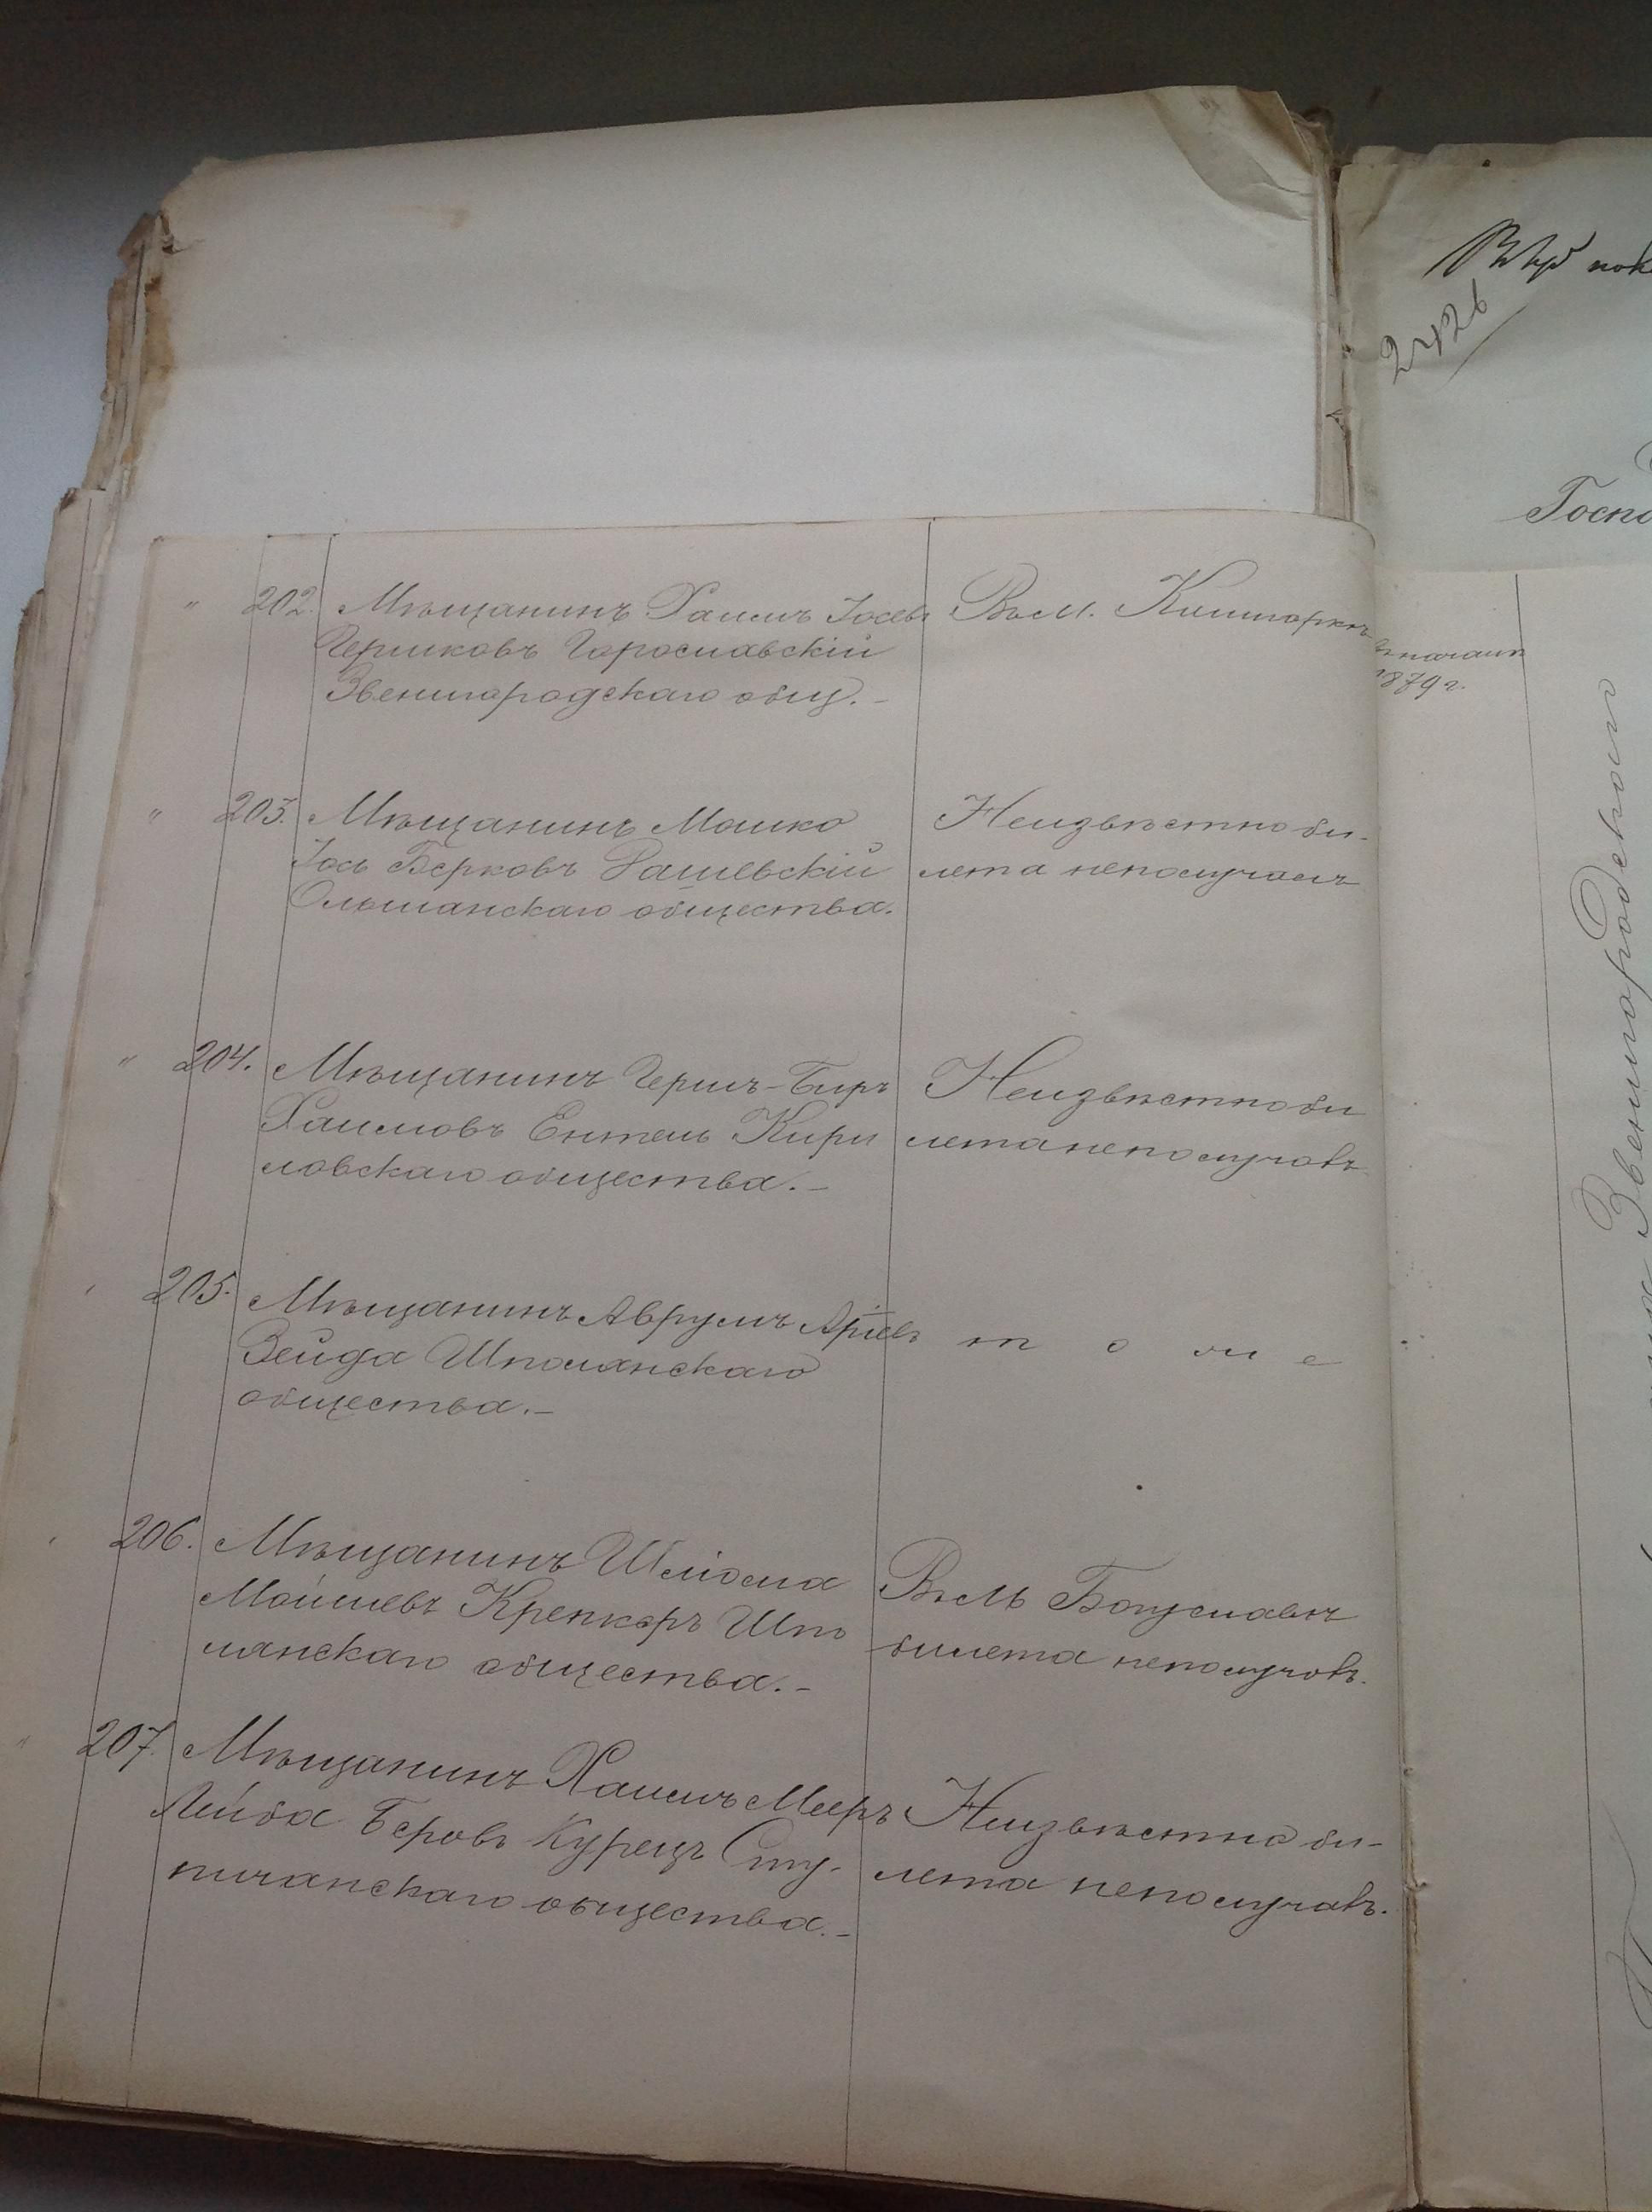 202. Мѣщанинъ Хаимъ Іосевъ
Гершковъ Гарославскій
Звенигородскаго общ. –
Въ м.
203. Мѣщанинъ Мошко
Іось Берковъ Рашевскій
Ольшанскаго общества.
Неизвѣстно би-
лета неполучалъ
204. Мѣщанинъ Гершъ-Беръ
Хаимовъ Ентель Кири
ловскаго общества. –
Неизвѣстно би
лета неполучавъ
205. Мѣщанинъ Аврумъ Аріевъ
Зейда Шполянскаго
общества. –
т о ж е
206. Мѣщанинъ Шліома
Мойшевъ Крепкеръ Шпо
лянскаго общества. –
Въ м. Богуславѣ
билета неполучавъ.
207. Мѣщанинъ Хаимъ Мееръ
Лейба Беровъ Курецъ Сту-
пичанскаго общества. –
Неизвѣстно би-
лета неполучавъ.
2426
1879 г.
Звенигородского